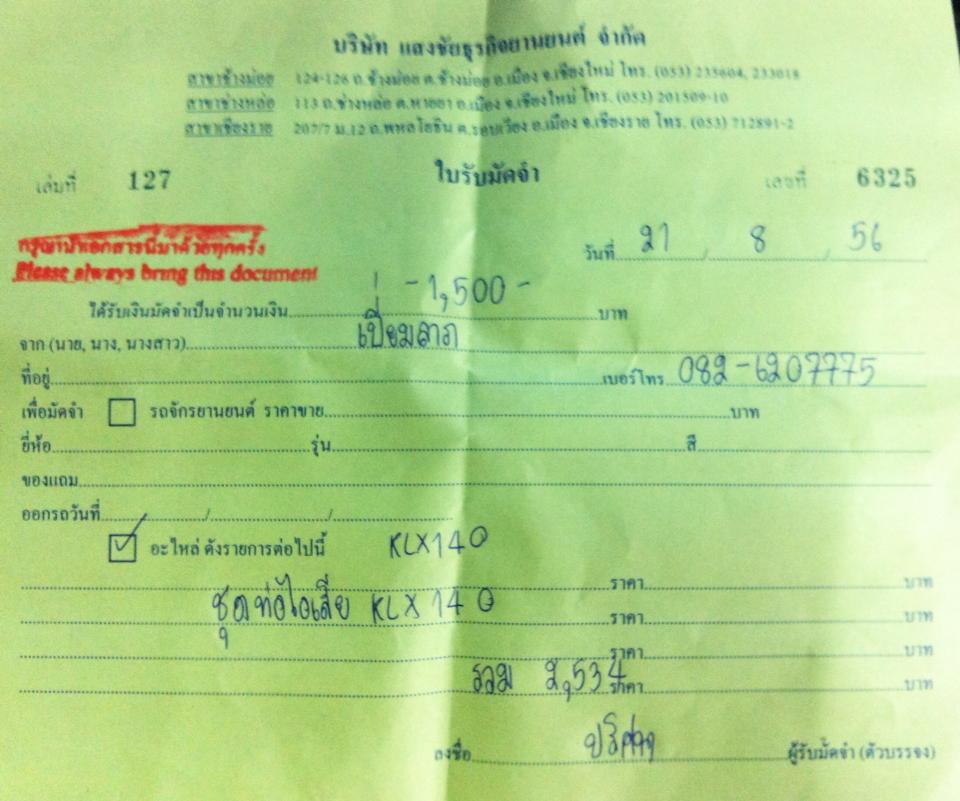 บริษัท แสงชัยธุรกิจยานยนต์ จำกัด
สาขาช้างม่อย 124-126 ถ.ช้างม่อย ต.ช้างม่อย อ.เมือง จ.เชียงใหม่ โทร. (053) 235604, 233018
สาขาช่างหล่อ 113 ถ.ช่างหล่อ ต.หายยา อ.เมือง จ.เชียงใหม่ โทร. (053) 201509-10
สาขาเชียงราย 207/7 ม.12 ถ.พหลโยธิน ต.รอบเวียง อ.เมือง จ.เชียงราย โทร. (053) 712891-2
เล่มที่ 127 ใบรับมัดจำ เลขที่ 6325
กรุณานำเอกสารนี้มาด้วยทุกครั้ง
Please always bring this document
วันที่ 21 / 8 / 56
ได้รับเงินมัดจำเป็นจำนวนเงิน -1,500- บาท
จาก (นาย, นาง, นางสาว) เปี่ยมลาภ
ที่อยู่ เบอร์โทร 082-6207775
เพื่อมัดจำ รถจักรยานยนต์ ราคาขาย บาท
ยี่ห้อ รุ่น สี
ของแถม
ออกรถวันที่ / /
อะไหล่ ดังรายการต่อไปนี้ KLX140
ราคา บาท
ชุดท่อไอเสีย KLX 140 ราคา บาท
ราคา บาท
รวม 2,534 ราคา บาท
ลงชื่อ ผู้รับมัดจำ (ตัวบรรจง)